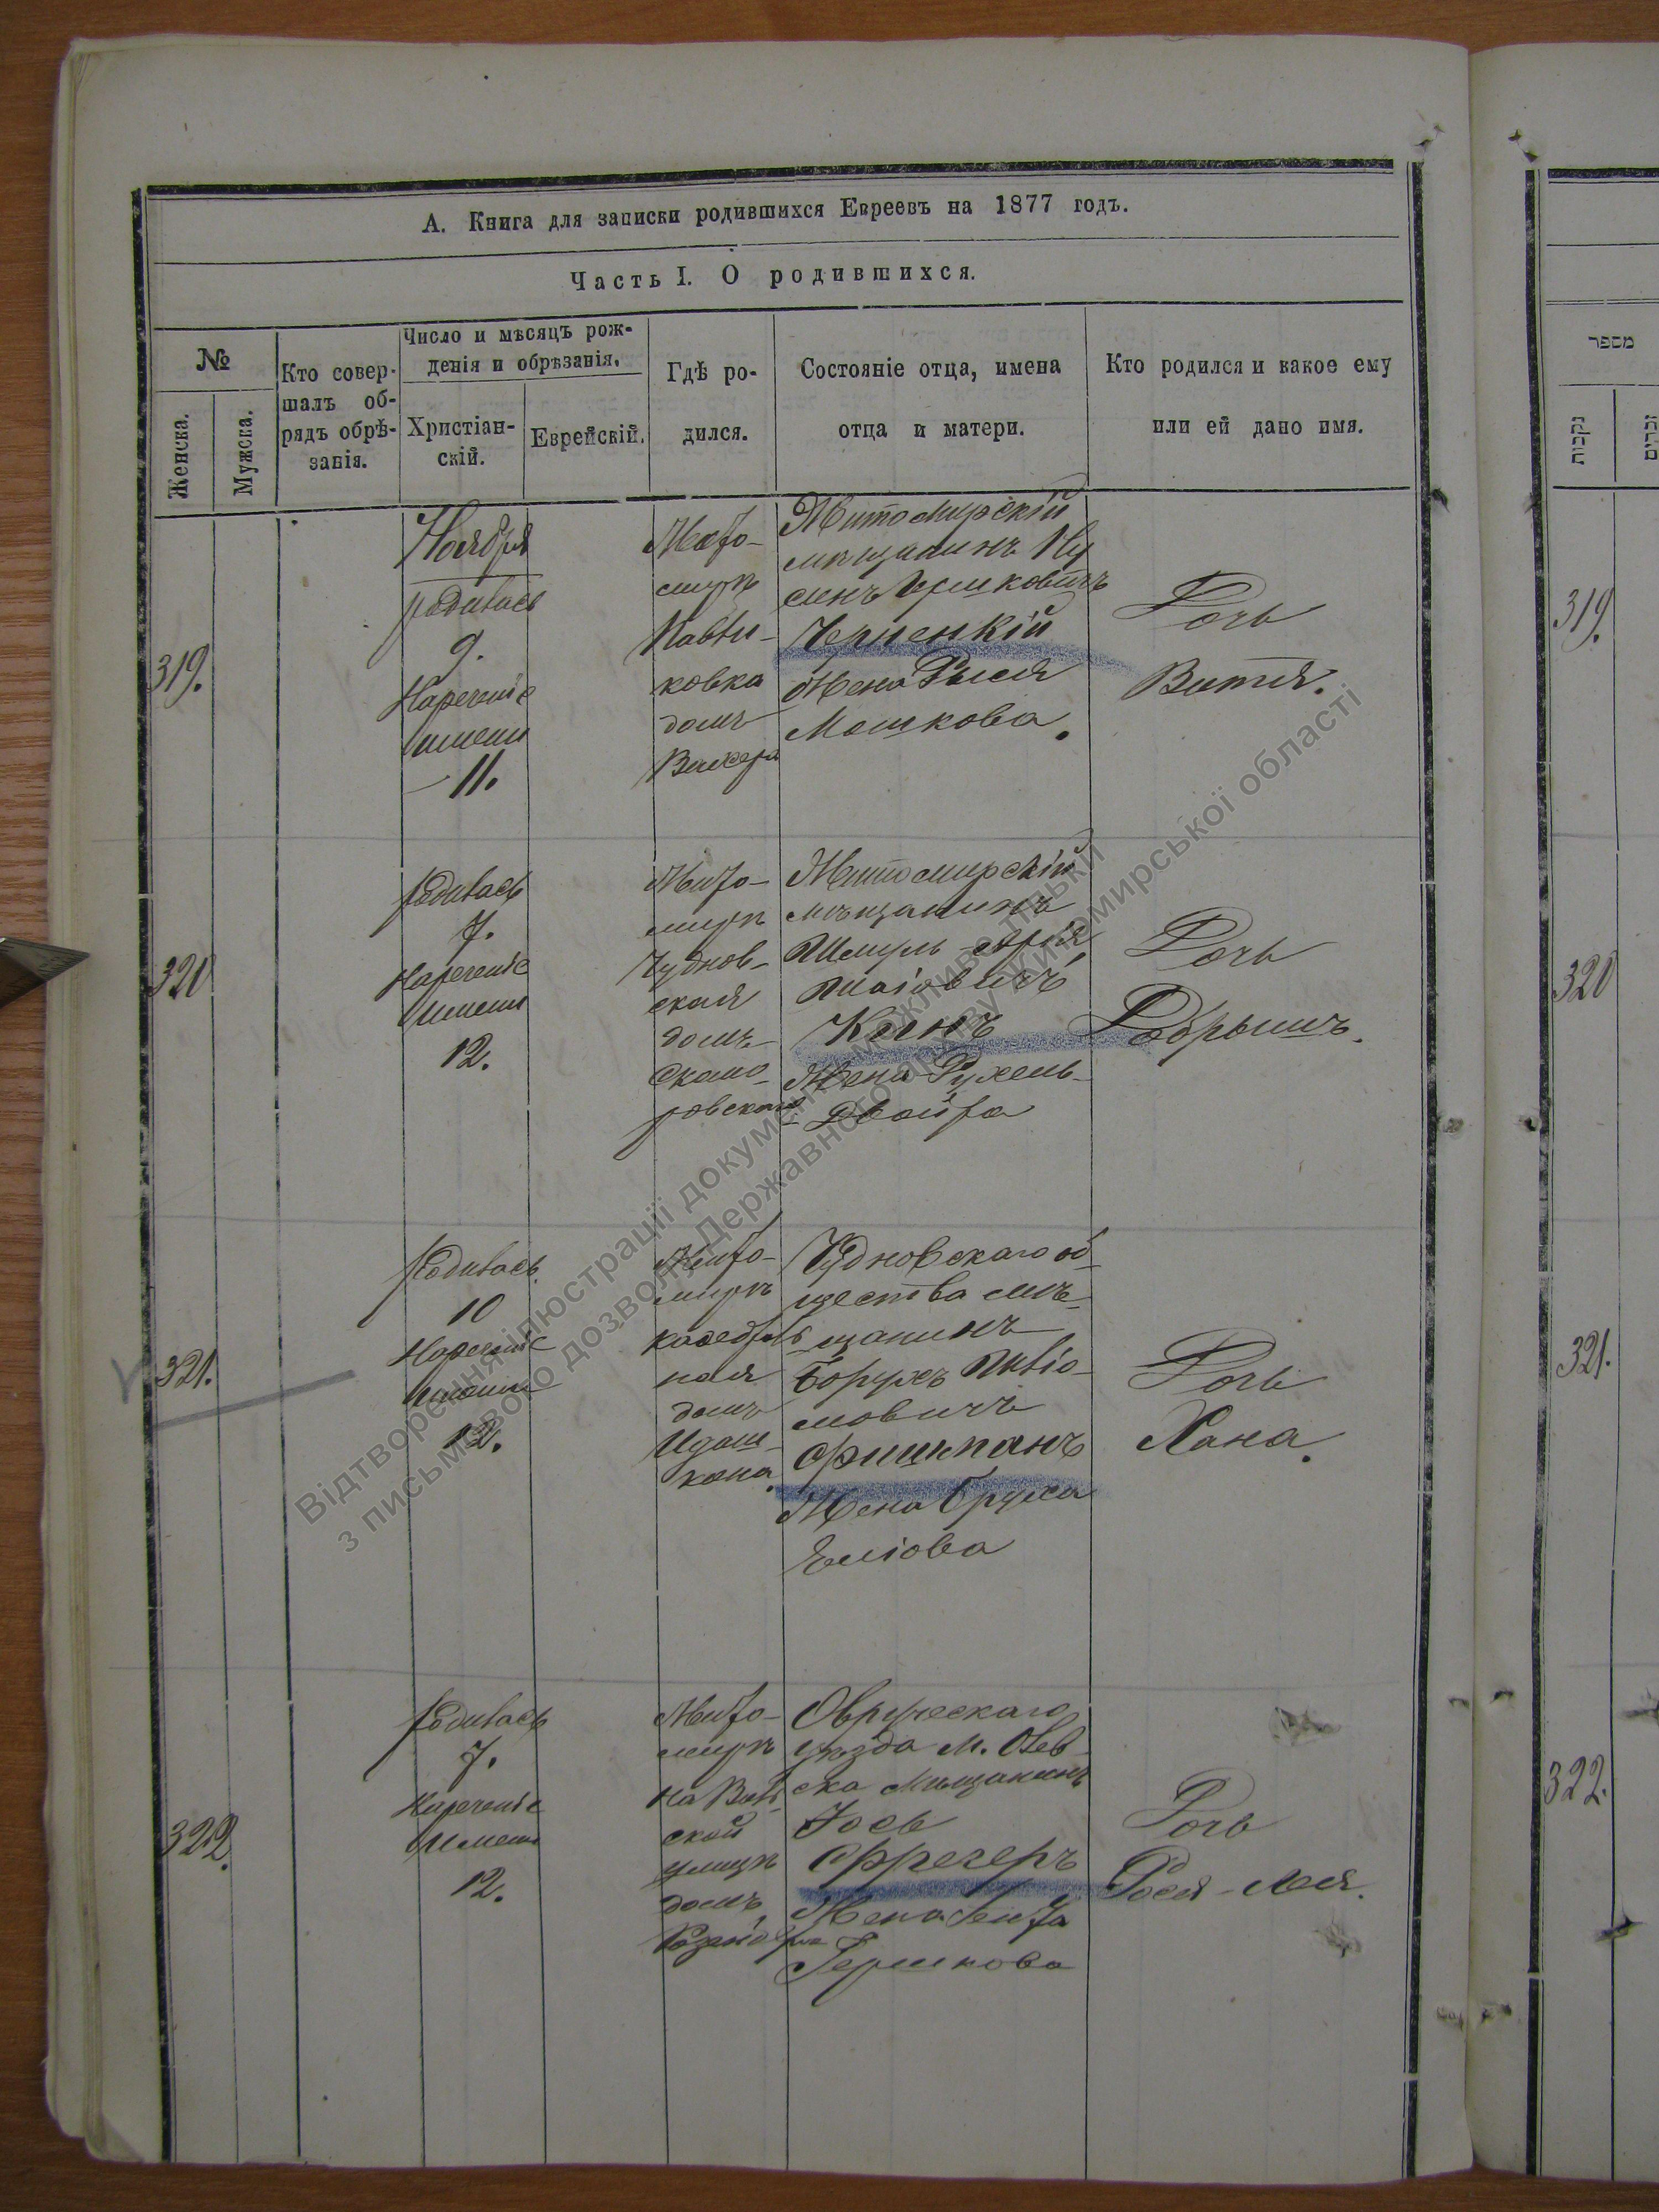 А. Книга для записки родившихся Евреевъ на 1877 годъ.
Часть I. О родившихся.
№
Женска.
Мужска.
Кто совер-
шалъ об-
рядъ обрѣ-
занія.
Число и мѣсяцъ рож-
денія и обрѣзанія.
Христіан-
скій.
Еврейскій.
Гдѣ ро-
дился.
Состояніе отца, имена
отца и матери.
Кто родился и какое ему
или ей дано имя.
319.
Ноября
родилась
9.
Нареченіе
имени
11.
Жито-
мирѣ
Павли-
ковка
домъ
Житомирскій
мѣщанинъ Ну
сенъ
Черненкій
Жена Рыся
Мошкова.
Дочь
Витя.
320
родилась
7.
Нареченіе
имени
12.
Жито-
мирѣ
Чуднов-
ская
домъ
Скомо-
ровскаго
Житомирскій
мѣщанинъ
Шмуль-Арія
Кинъ
Жена Рухель-
Двойра
Дочь
Добрышъ.
321.
родилась
10
Нареченіе
имени
12.
Жито-
мирѣ
каѳедраль
ная
домъ
Чудновскаго об-
щества мѣ-
щанинъ
Борухъ
мовичъ
Фишманъ
Жена Бруха
Еліова
Дочь
Хана.
322.
родилась
7.
Нареченіе
имени
12.
Жито-
мирѣ
На Виль
ской
улицѣ
домъ
Овручскаго
уѣзда м. Олев-
ска мѣщанинъ
Іось
Фрегеръ
Жена
Гершкова
Дочь
Рося-Лея.
מספר
נקבות
זכרים
319.
320
321.
322.
Відтворення ілюстрації документа можливе тільки
з письмового дозволу Державного архіву Житомирської області